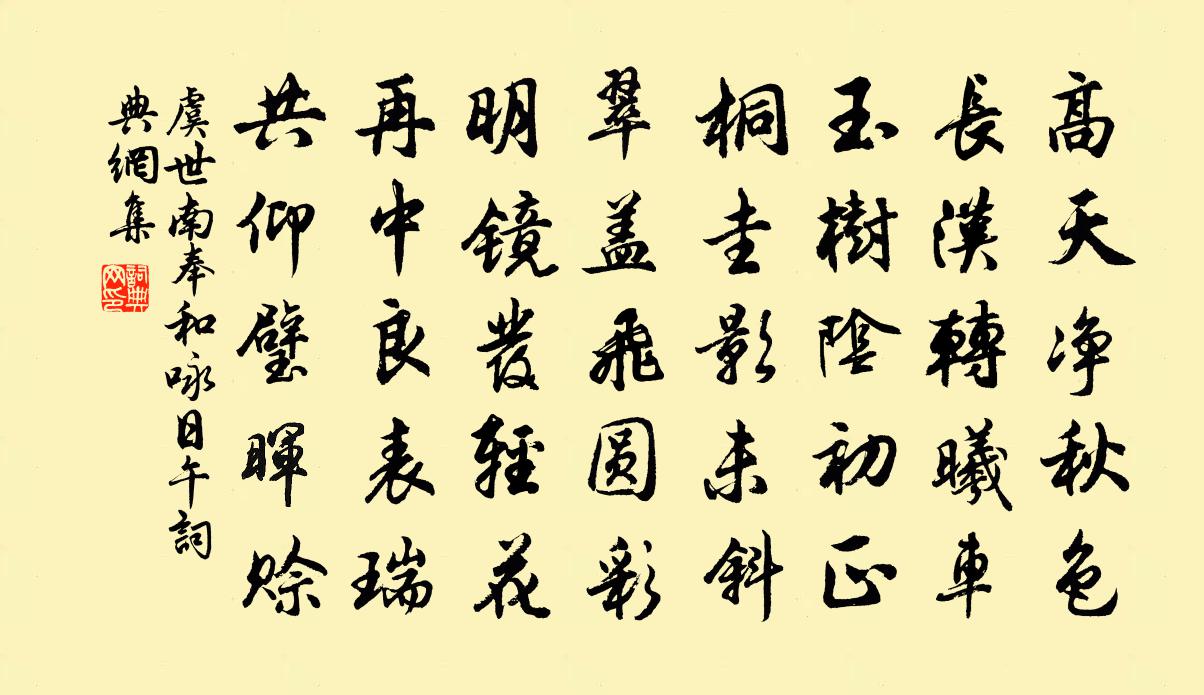 高天净秋色
長漢轉曦車
玉樹陰初正
桐圭影未斜
翠盖飛圆彩
明鏡發輕花
再中良表瑞
共仰璧暉賒
虞世南奉和咏日午詞
典網集
詞典网印